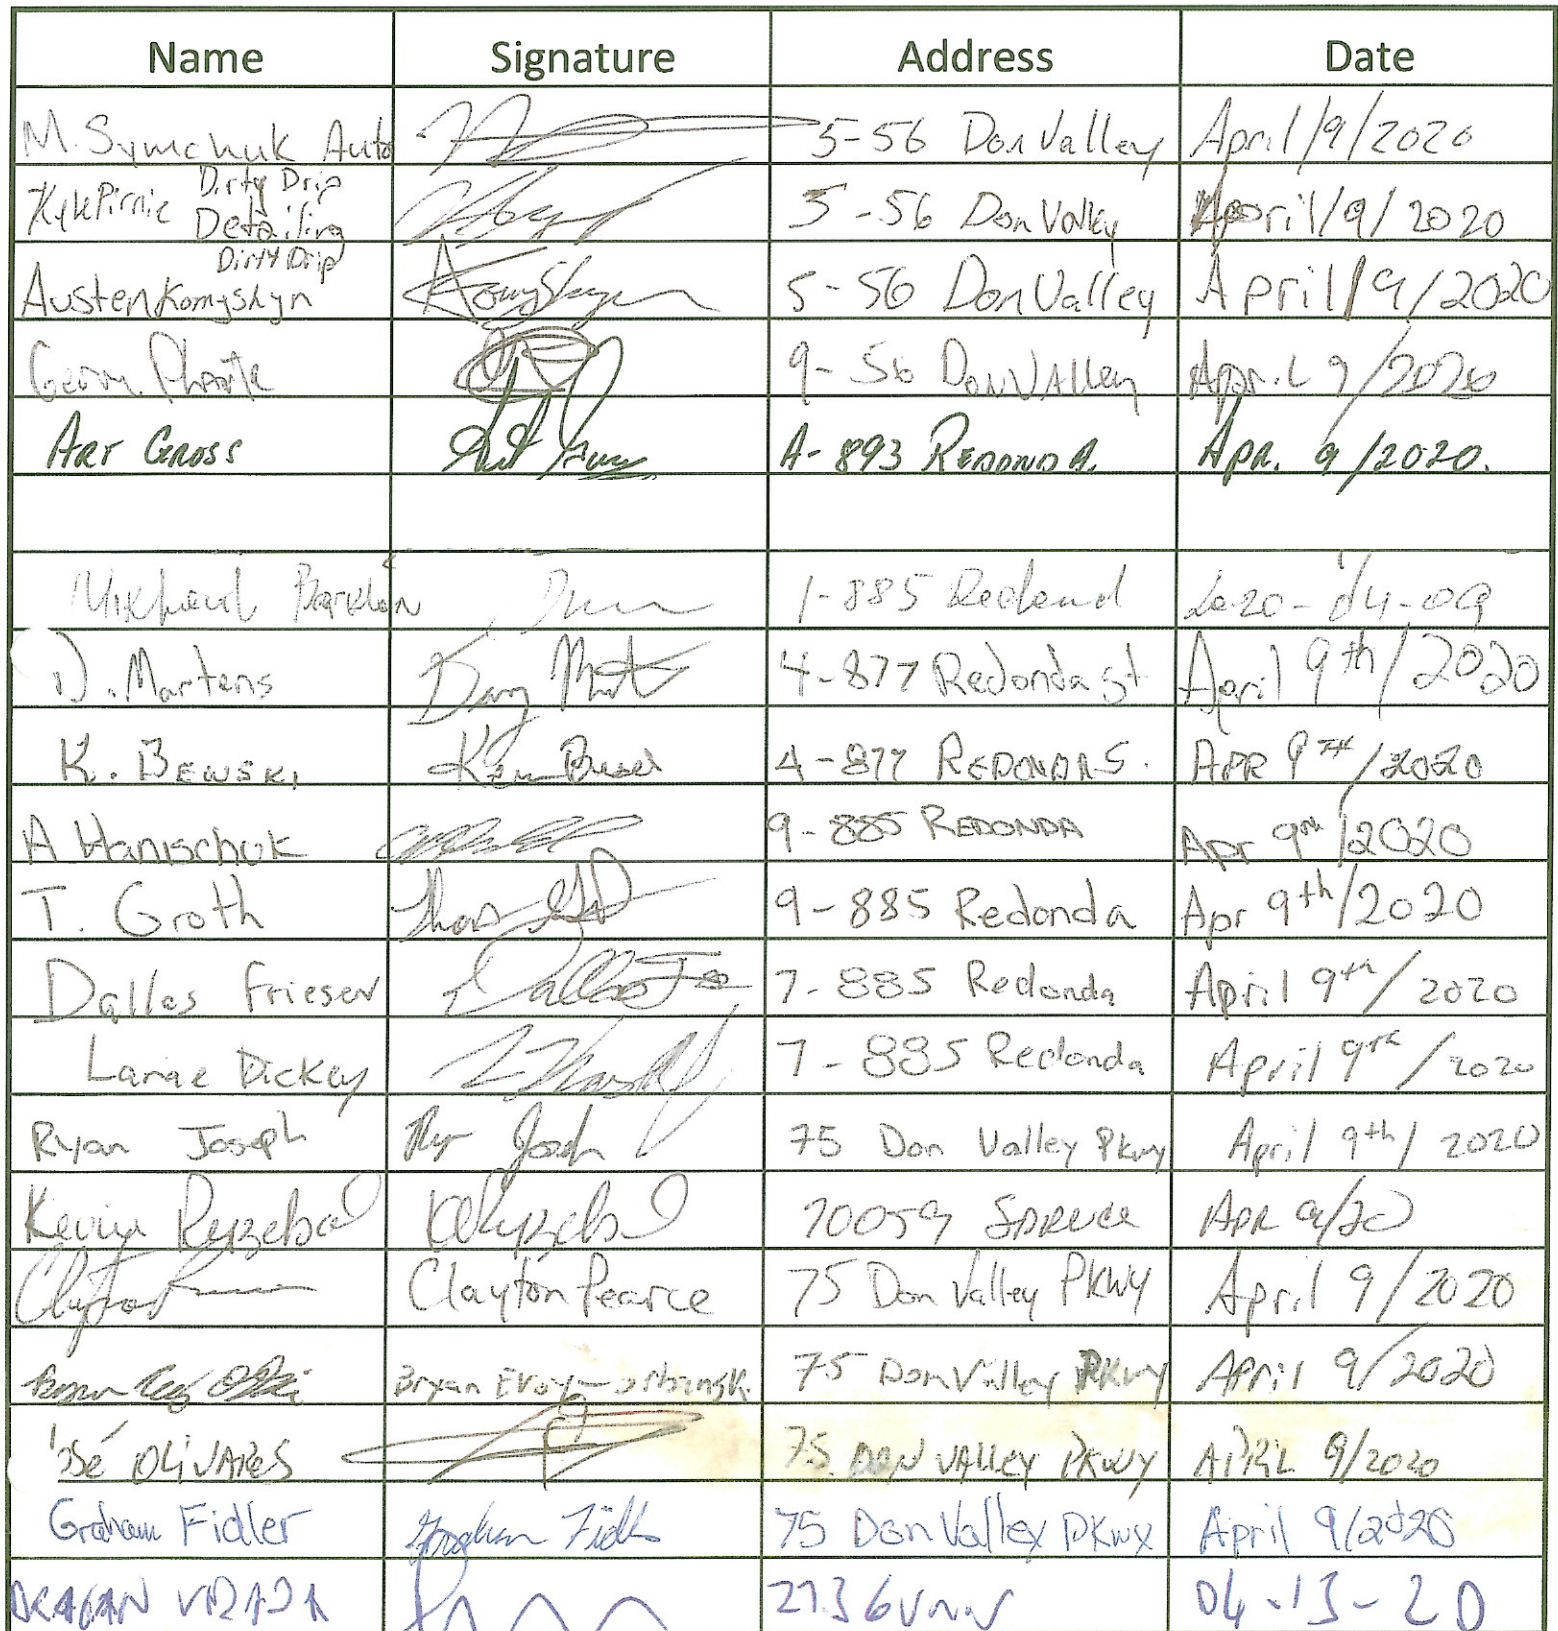 Name Signature Address Date
M. Symchuk Auto 5-56 Don Valley April/9/2020
Kyle Pirnie Dirty Drip Detailing 5-56 Don Valley April/9/2020
Austen Komyshyn Dirty Drip 5-56 Don Valley April/9/2020
9-56 Don Valley April 9/2020
Art Gross A-893 Redonda Apr. 9/2020.
1-885 2020-04-09
D. Martens 4-877 Redonda st April 9th/2020
K. Bewski 4-877 Redonda S. Apr 9th/2020
A Hanischuk 9-885 Redonda Apr 9th/2020
T. Groth 9-885 Redonda Apr 9th/2020
Dallas Friesen 7-885 Redonda April 9th/2020
Larae Dickey 7-885 Redonda April 9th/2020
Ryan Joseph 75 Don Valley Pkwy April 9th/2020
Kevin 70059 Spruce Apr 9/20
Clayton Pearce 75 Don Valley PKWY April 9/2020
Bryan 75 Don Valley PKWY April 9/2020
José OLIVARES 75 DON VALLEY PKWY APRIL 9/2020
Graham Fidler Graham Fidler 75 Don Valley PKWY April 9/2020
04-13-20